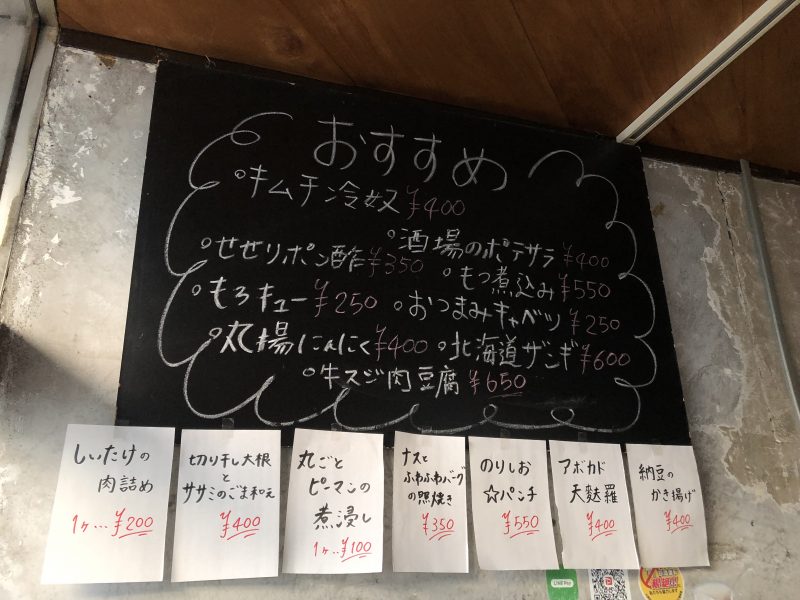 おすすめ
○キムチ冷奴 ¥400
○酒場のポテサラ ¥400
○せせりポン酢 ¥350
○もつ煮込み ¥550
○もろキュー ¥250
○おつまみキャベツ ¥250
○丸揚にんにく ¥400
○北海道ザンギ ¥600
○牛スジ肉豆腐 ¥650
しいたけの
肉詰め
1ヶ…¥200
切り干し大根
と
ササミのごま和え
¥400
丸ごと
ピーマンの
煮浸し
1ヶ…¥100
ナスと
ふわふわバーグ
の照焼き
¥350
のりしお
☆パンチ
¥550
アボカド
天麩羅
¥400
納豆の
かき揚げ
¥400
LINE Pay